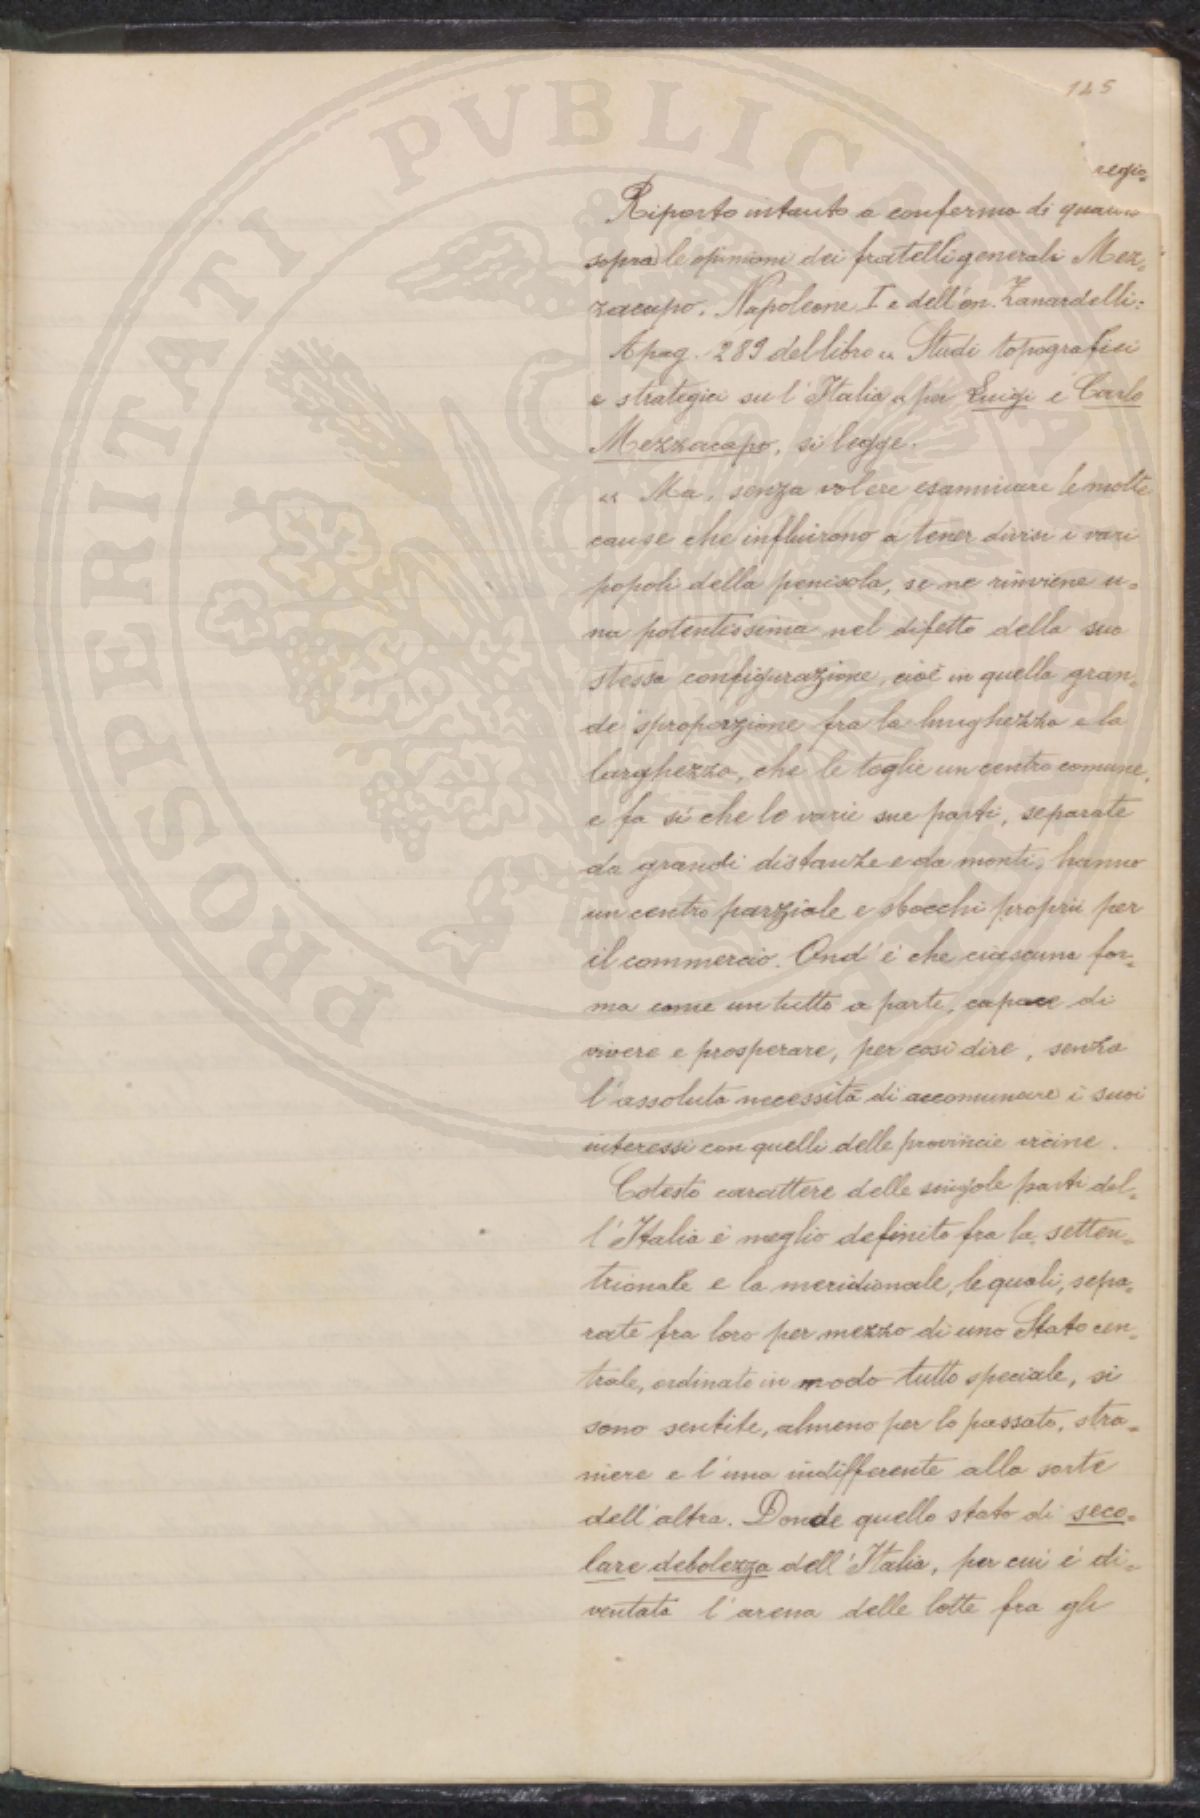 125
regio=
Riporto intanto a conferma di quanto
sopra le opinioni dei fratelli generali Mez=
zacapo, Napoleone I e dell'on. Zanardelli:
A pag. 289 del libro « Studi topografici
e strategici su l'Italia « per Luigi e Carlo
Mezzacapo, si legge.
« Ma, senza volere esaminare le molte
cause che influirono a tener divisi i vari
popoli della penisola, se ne rinviene u=
na potentissima nel difetto della sua
stessa configurazione, cioè in quella gran=
de sproporzione fra la lunghezza e la
larghezza, che le toglie un centro comune,
e fa sì che le varie sue parti, separate
da grandi distanze e da monti, hanno
un centro parziale e sbocchi proprii per
il commercio. Ond'è che ciascuna for=
ma come un tutto a parte, capace di
vivere e prosperare, per così dire, senza
l'assoluta necessità di accomunare i suoi
interessi con quelli delle provincie vicine.
Cotesto carattere delle singole parti del=
l'Italia è meglio definito fra la setten=
trionale e la meridionale, le quali, sepa=
rate fra loro per mezzo di uno Stato cen=
trale, ordinato in modo tutto speciale, si
sono sentite, almeno per lo passato, stra=
niere e l'una indifferente alla sorte
dell'altra. Donde quello stato di seco=
lare debolezza dell'Italia, per cui è di=
ventata l'arena delle lotte fra gli
PROSPERITATI PVBLICAE